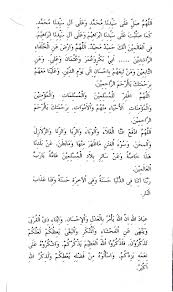 اَللّٰهُمَّ صَلِّ عَلَى سَيِّدِنَا مُحَمَّدٍ وَعَلَى آلِ سَيِّدِنَا مُحَمَّدٍ
كَمَا صَلَّيْتَ عَلَى سَيِّدِنَا اِبْرَاهِيْمَ وَعَلَى آلِ سَيِّدِنَا اِبْرَاهِيْمَ
فِي الْعَالَمِيْنَ اِنَّكَ حَمِيْدٌ مَجِيْدٌ. اَللّٰهُمَّ وَارْضَ عَنِ الْخُلَفَاءِ
الرَّاشِدِيْنَ ... اَبِي بَكْرٍ وَعُمَرَ وَعُثْمَانَ وَعَلِيٍّ. وَعَنْ
وَمَنْ تَبِعَهُمْ بِاِحْسَانٍ اِلَى يَوْمِ الدِّيْنِ وَعَلَيْنَا مَعَهُمْ
بِرَحْمَتِكَ يَااَرْحَمَ الرَّاحِمِيْنَ
اَللّٰهُمَّ اغْفِرْ لِلْمُسْلِمِيْنَ وَالْمُسْلِمَاتِ وَالْمُؤْمِنِيْنَ
وَالْمُؤْمِنَاتِ الْاَحْيَاءِ مِنْهُمْ وَالْاَمْوَاتِ. بِرَحْمَتِكَ يَااَرْحَمَ
الرَّاحِمِيْنَ
اَللّٰهُمَّ ادْفَعْ عَنَّا الْغَلَاءَ وَالْوَبَاءَ وَالرِّبَا وَالزِّنَا وَالزَّلَازِلَ
وَالْمِحَنَ وَسُوْءَ الْفِتَنِ مَاظَهَرَ مِنْهَا وَمَا بَطَنَ عَنْ بَلَدِنَا
هَذَا خَاصَّةً وَعَنْ سَائِرِ بِلَادِ الْمُسْلِمِيْنَ عَامَّةً يَارَبَّ
الْعَالَمِيْنَ
رَبَّنَا اٰتِنَا فِي الدُّنْيَا حَسَنَةً وَفِي الْاٰخِرَةِ حَسَنَةً وَقِنَا عَذَابَ
النَّارِ
عِبَادَ اللهِ اِنَّ اللهَ يَأْمُرُ بِالْعَدْلِ وَالْاِحْسَانِ. وَاِيْتَاءِ ذِي الْقُرْبَى
وَيَنْهَى عَنِ الْفَحْشَاءِ وَالْمُنْكَرِ وَالْبَغْيِ يَعِظُكُمْ لَعَلَّكُمْ
تَذَكَّرُوْنَ. فَاذْكُرُوا اللهَ الْعَظِيْمَ يَذْكُرْكُمْ. وَاشْكُرُوْهُ عَلَى
نِعَمِهِ يَزِدْكُمْ. وَاسْأَلُوْهُ مِنْ فَضْلِهِ يُعْطِكُمْ وَلَذِكْرُ اللهِ
اَكْبَرُ.